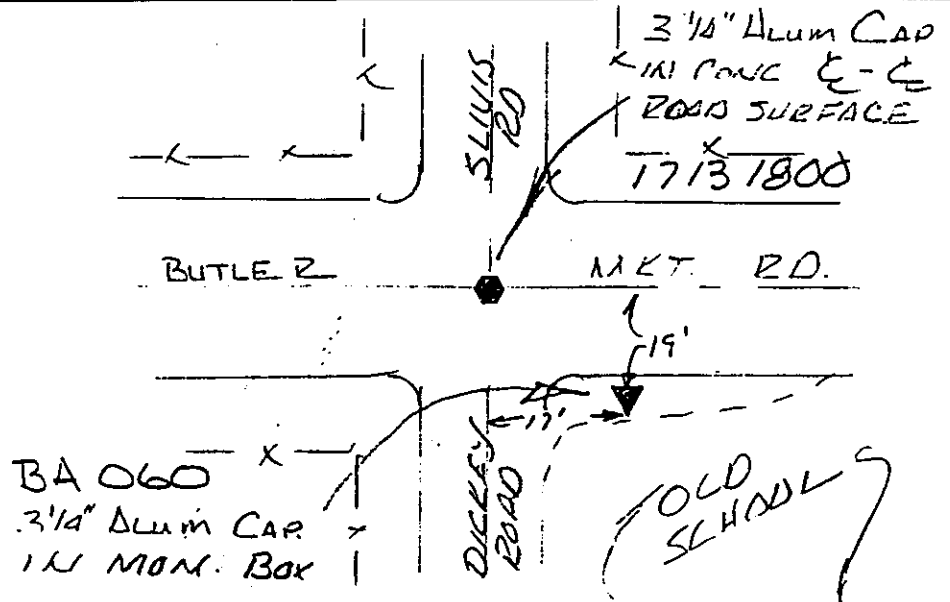 3 1/4" ALUM CAP
IN CONC ℄-℄
ROAD SURFACE
17131800
SLIVIS
RD
BUTLER MKT. RD.
19'
17'
BA 060
3 1/4" ALUM CAP.
IN MON. BOX
DICKEY
ROAD
OLD
SCHOOL